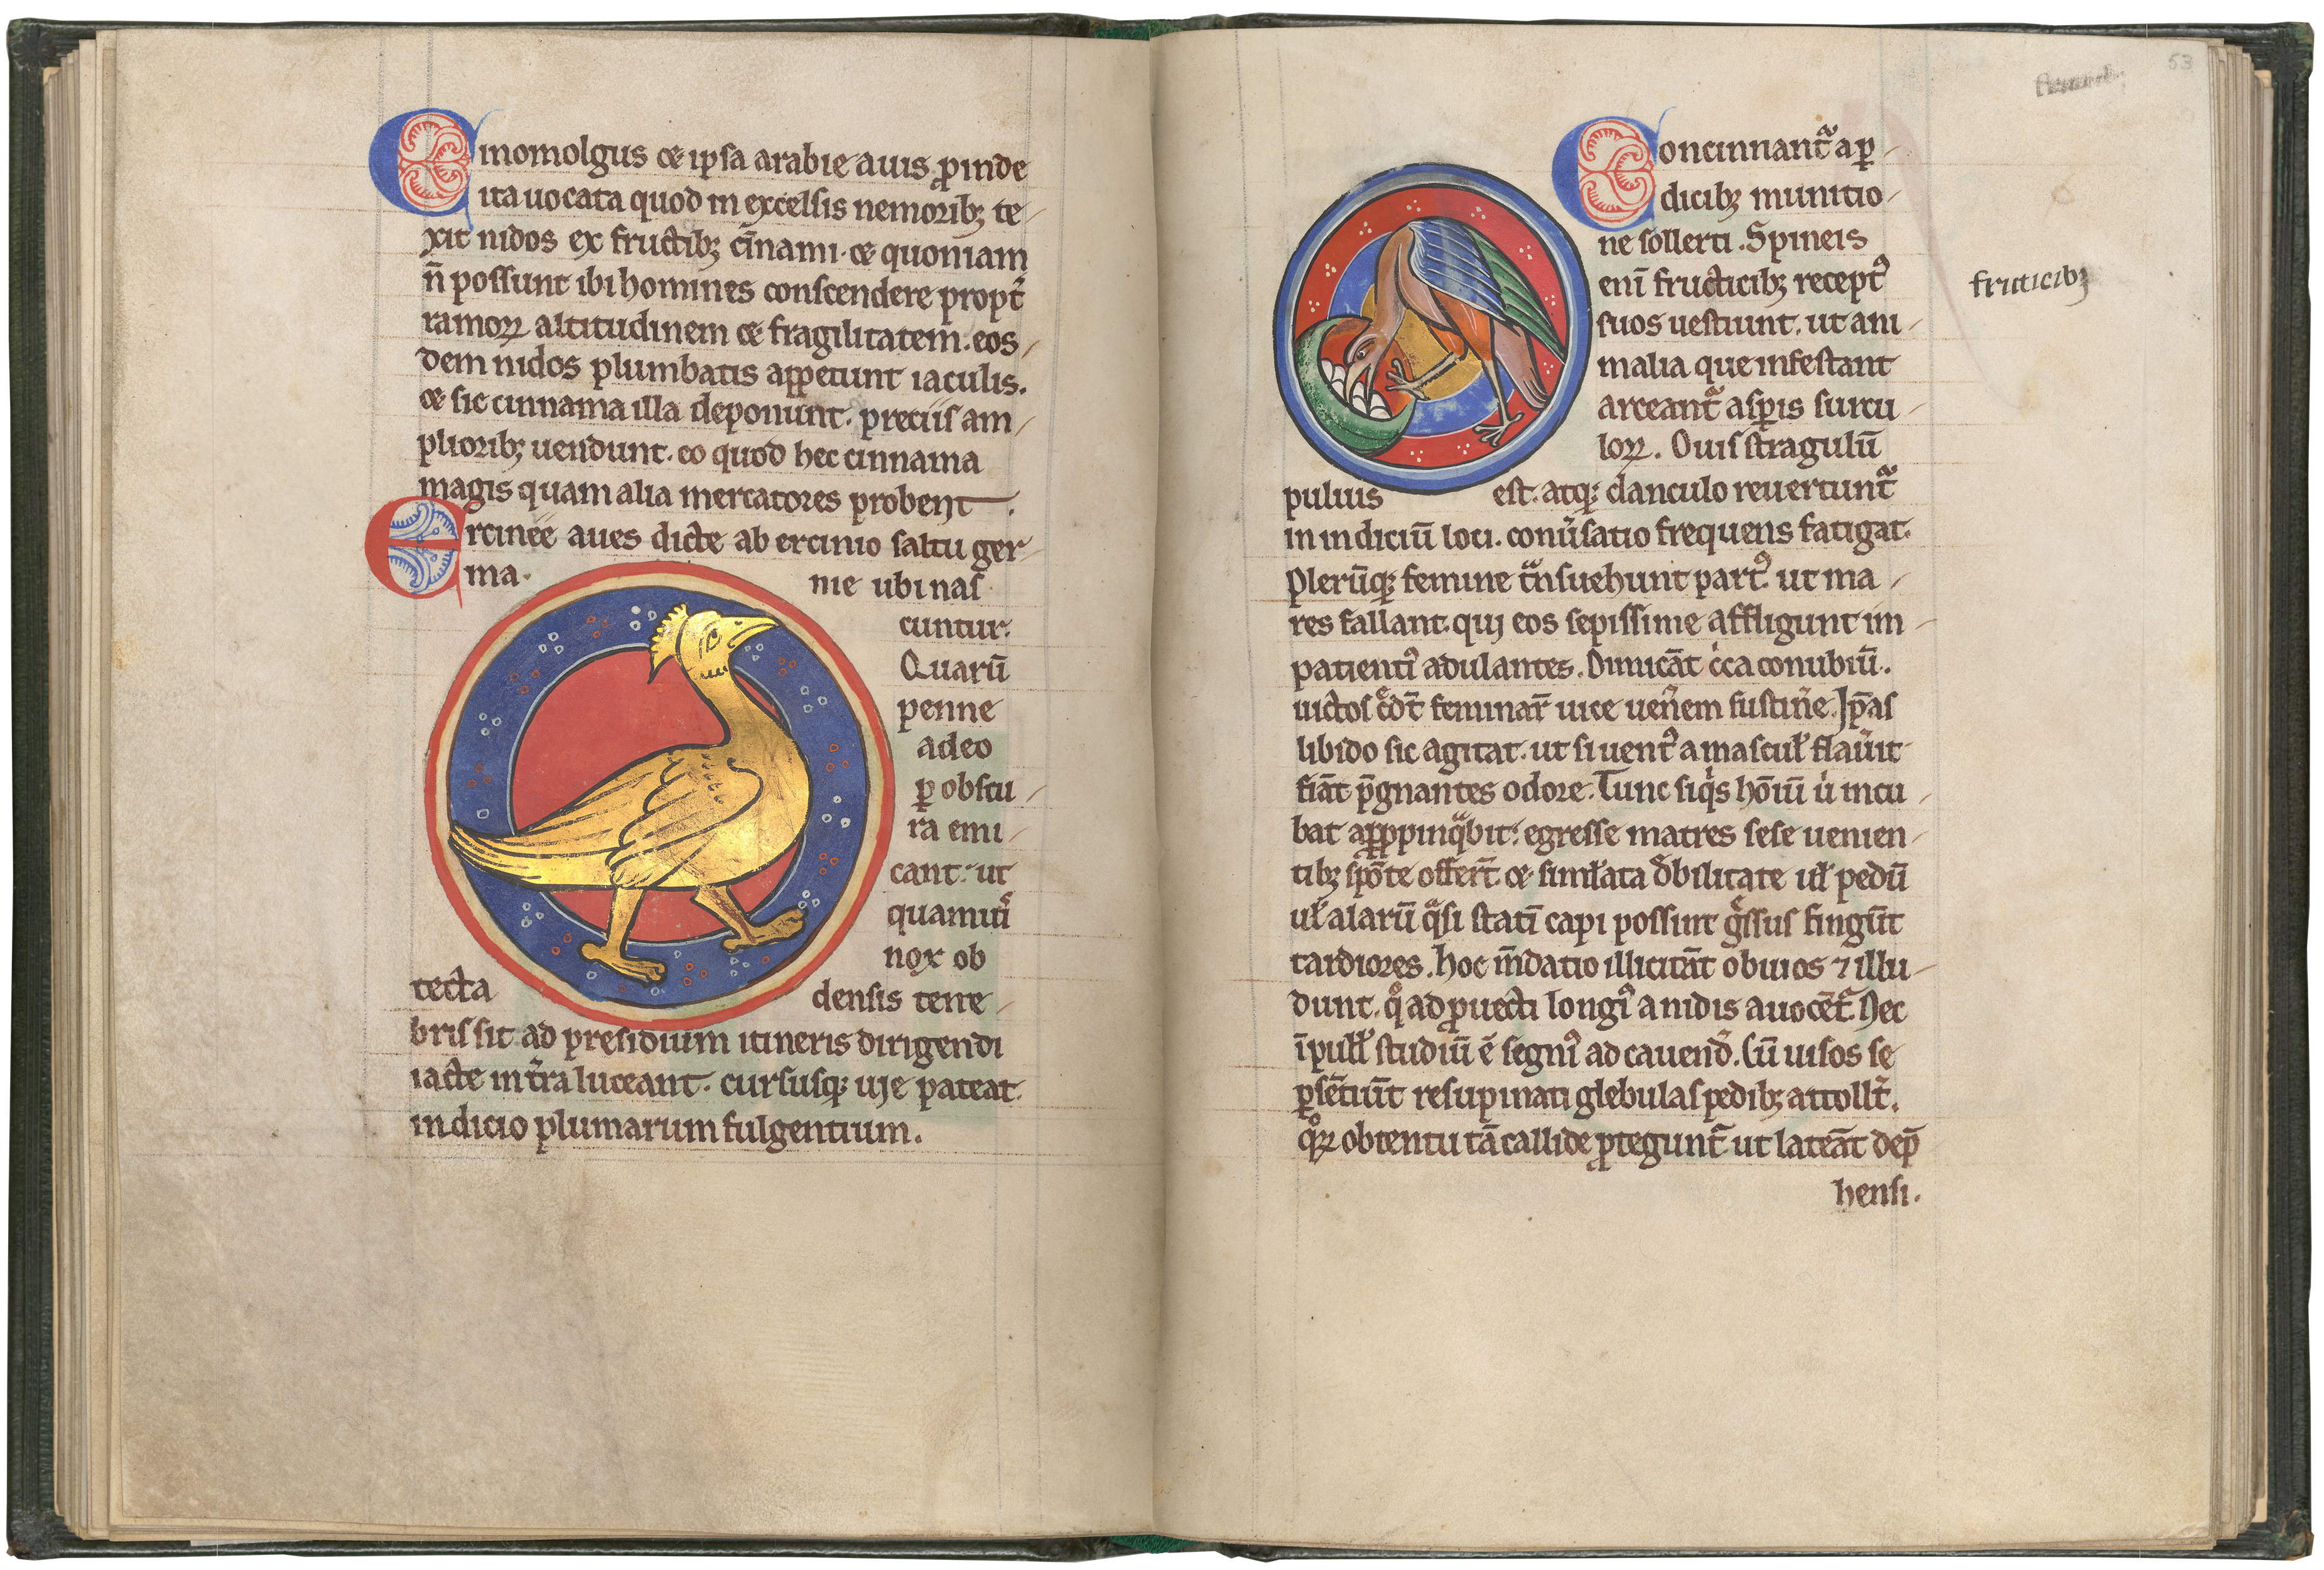 Cinomolgus et ipsa arabie auis ꝓinde
ita uocata quod in excelsis nemoribꝫ te
xit nidos ex fructibꝫ cīnami. et quoniam
n̄ possunt ibi homines conscendere propt̄
ramoꝝ altitudinem et fragilitatem. eos
dem nidos plumbatis appetunt iaculis.
et sic cinnama illa deponunt. preciis am
plioribꝫ uendunt. eo quod hec cinnama
magis quam alia mercatores probent.
Ercinee aues dicte ab ercinio saltu ger
ma. nie ubi nas
cuntur.
Quarū
penne
adeo
ꝑ obscu
ra emi
cant. ut
quamuͥ
nox ob
tecta densis tene
bris sit ad presidium itineris dirigendi
iacte int̄ra luceant. cursusqꝫ uie pateat.
indicio plumarum fulgentium.
53
Concinnantᷓ a ꝑ
dicibꝫ munitio
ne sollerti. Spineis
enī fructicibꝫ receptꝰ
fruticibꝫ
suos uestiunt. ut ani
malia que infestant
arceantᷓ asꝑis surcu
loꝝ. Ouis stragulū
puluis est. atqꝫ clanculo reuertuntᷓ
in indiciū loci. conūsatio frequens fatigat.
Plerūqꝫ femine tᷓnsuehunt partꝰ. ut ma
res fallant. qui eos sepissime affligunt im
patientiꝰ adulantes. Dimicāt cͥca conubiū.
uictos cͤdt̄ feminaꝝ uice uen̄em sustin̄e. Ip̄as
libido sic agitat. ut si uentꝰ a masculꝭ flau̾it
fiāt p̄gnantes odore. Tunc siqͥs hoīū uͥ incu
bat aꝓpinqᷓbit: egresse matres sese uenien
tibꝫ spōte offert̄. et simlata dͤbilitate ul̄ pedū
ul̄ alarū qᷓsi statī capi possint gͤssus fingūt
tardiores. Hoc m̄datio illicitāt obuios ⁊ illu
dunt. qͦ ad ꝓuecti longiꝰ a nidis auocēt. Nec
ī pull̄ studiū ē segniꝰ ad cauend̄. Cū uisos se
ꝑsētiūt resupinati glebulas pedibꝫ attollt̄.
qͦꝝ obtentu tā callide ꝓtegunt̄ ut lateāt dep̄
hensi.